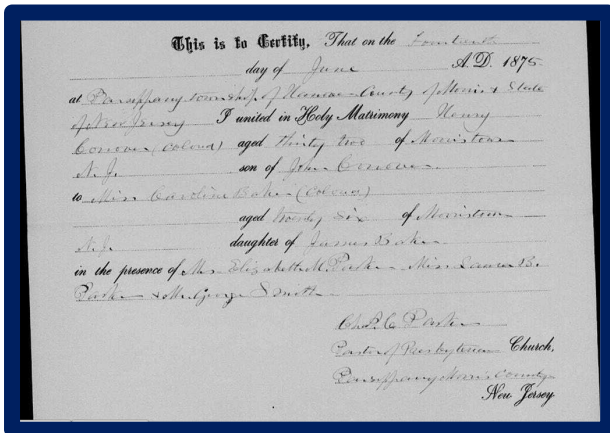 This is to Certify, That on the Fourteenth
day of June A.D. 1875
at Parsippany township of Hanover County of Morris & State
of New Jersey I united in Holy Matrimony Henry
Conover (Colored) aged thirty two of Morristown
N.J. son of John Conover
to Miss Caroline Baker (Colored)
aged twenty six of Morristown
N.J. daughter of James Baker
in the presence of Mrs Elizabeth M. Parker Miss Laura B.
Parker & Mr George Smith
C Parker
Pastor of Presbyterian Church,
Parsippany Morris County
New Jersey